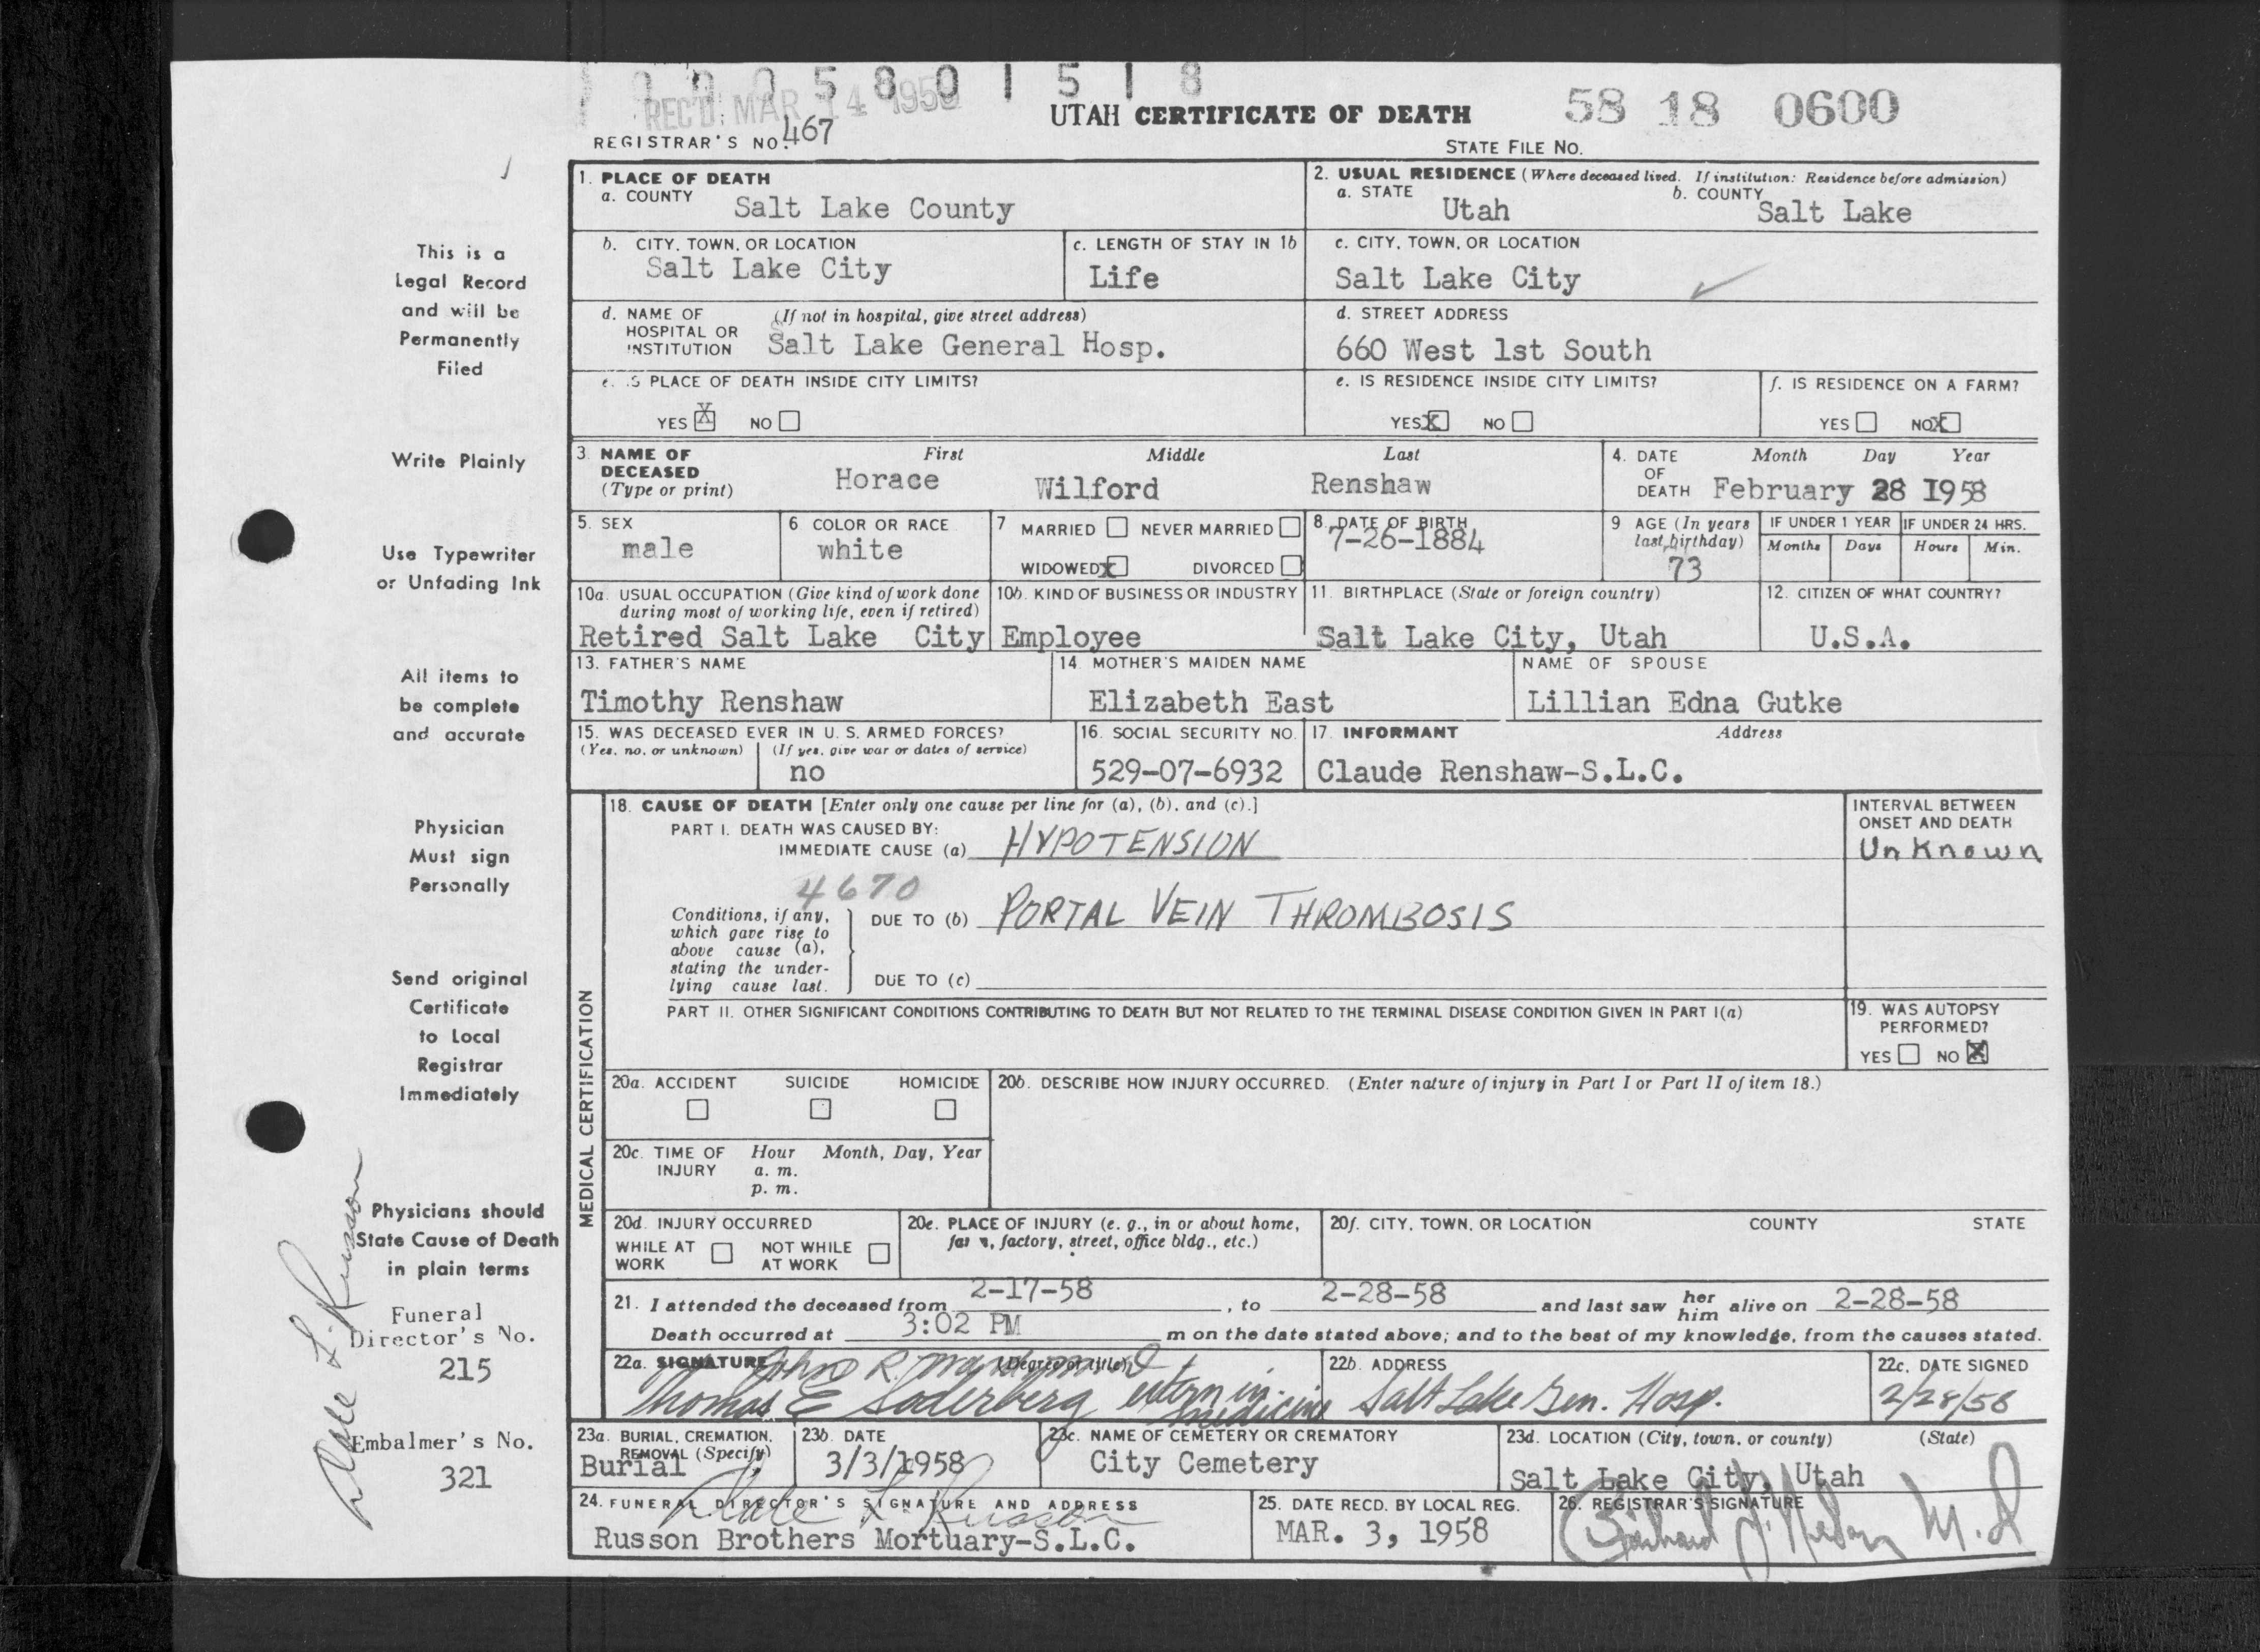 0 0 0 5 8 0 1 5 1 8
REC'D. MAR 14 195
UTAH CERTIFICATE OF DEATH
58 18 0600
REGISTRAR'S NO. 467
STATE FILE No.
1. PLACE OF DEATH
a. COUNTY Salt Lake County
2. USUAL RESIDENCE (Where deceased lived. If institution: Residence before admission)
a. STATE Utah b. COUNTY Salt Lake
b. CITY, TOWN, OR LOCATION
Salt Lake City
c. LENGTH OF STAY IN 1b
Life
c. CITY, TOWN, OR LOCATION
Salt Lake City ✓
d. NAME OF HOSPITAL OR INSTITUTION (If not in hospital, give street address)
Salt Lake General Hosp.
d. STREET ADDRESS
660 West 1st South
e. IS PLACE OF DEATH INSIDE CITY LIMITS?
YES X NO
e. IS RESIDENCE INSIDE CITY LIMITS?
YES X NO
f. IS RESIDENCE ON A FARM?
YES NO X
3. NAME OF DECEASED (Type or print)
First Middle Last
Horace Wilford Renshaw
4. DATE OF DEATH Month Day Year
February 28 1958
5. SEX
male
6 COLOR OR RACE
white
7 MARRIED NEVER MARRIED
WIDOWED X DIVORCED
8. DATE OF BIRTH
7-26-1884
9 AGE (In years last birthday)
73
IF UNDER 1 YEAR IF UNDER 24 HRS.
Months Days Hours Min.
10a. USUAL OCCUPATION (Give kind of work done during most of working life, even if retired)
10b. KIND OF BUSINESS OR INDUSTRY
Retired Salt Lake City Employee
11. BIRTHPLACE (State or foreign country)
Salt Lake City, Utah
12. CITIZEN OF WHAT COUNTRY?
U.S.A.
13. FATHER'S NAME
Timothy Renshaw
14. MOTHER'S MAIDEN NAME
Elizabeth East
NAME OF SPOUSE
Lillian Edna Gutke
15. WAS DECEASED EVER IN U. S. ARMED FORCES?
(Yes, no, or unknown) (If yes, give war or dates of service)
no
16. SOCIAL SECURITY NO.
529-07-6932
17. INFORMANT Address
Claude Renshaw-S.L.C.
MEDICAL CERTIFICATION
18. CAUSE OF DEATH [Enter only one cause per line for (a), (b), and (c).]
PART I. DEATH WAS CAUSED BY:
IMMEDIATE CAUSE (a) HYPOTENSION
INTERVAL BETWEEN ONSET AND DEATH
Unknown
4670
Conditions, if any, which gave rise to above cause (a), stating the underlying cause last.
DUE TO (b) PORTAL VEIN THROMBOSIS
DUE TO (c)
PART II. OTHER SIGNIFICANT CONDITIONS CONTRIBUTING TO DEATH BUT NOT RELATED TO THE TERMINAL DISEASE CONDITION GIVEN IN PART I(a)
19. WAS AUTOPSY PERFORMED?
YES NO X
20a. ACCIDENT SUICIDE HOMICIDE
20b. DESCRIBE HOW INJURY OCCURRED. (Enter nature of injury in Part I or Part II of item 18.)
20c. TIME OF INJURY Hour Month, Day, Year
a. m.
p. m.
20d. INJURY OCCURRED
WHILE AT WORK NOT WHILE AT WORK
20e. PLACE OF INJURY (e. g., in or about home, farm, factory, street, office bldg., etc.)
20f. CITY, TOWN, OR LOCATION COUNTY STATE
21. I attended the deceased from 2-17-58, to 2-28-58 and last saw her him alive on 2-28-58
Death occurred at 3:02 PM m on the date stated above; and to the best of my knowledge, from the causes stated.
22a. SIGNATURE (Degree or title)
John R.
Thomas E Soderberg extern in medicine
22b. ADDRESS
Salt Lake Gen. Hosp.
22c. DATE SIGNED
2/28/58
23a. BURIAL, CREMATION, REMOVAL (Specify)
Burial
23b. DATE
3/3/1958
23c. NAME OF CEMETERY OR CREMATORY
City Cemetery
23d. LOCATION (City, town, or county) (State)
Salt Lake City, Utah
24. FUNERAL DIRECTOR'S SIGNATURE AND ADDRESS
Dale L. Russon
Russon Brothers Mortuary-S.L.C.
25. DATE RECD. BY LOCAL REG.
MAR. 3, 1958
26. REGISTRAR'S SIGNATURE
M.D
This is a
Legal Record
and will be
Permanently
Filed
Write Plainly
Use Typewriter
or Unfading Ink
All items to
be complete
and accurate
Physician
Must sign
Personally
Send original
Certificate
to Local
Registrar
Immediately
Physicians should
State Cause of Death
in plain terms
Funeral
Director's No.
215
Embalmer's No.
321
Dale L. Russon